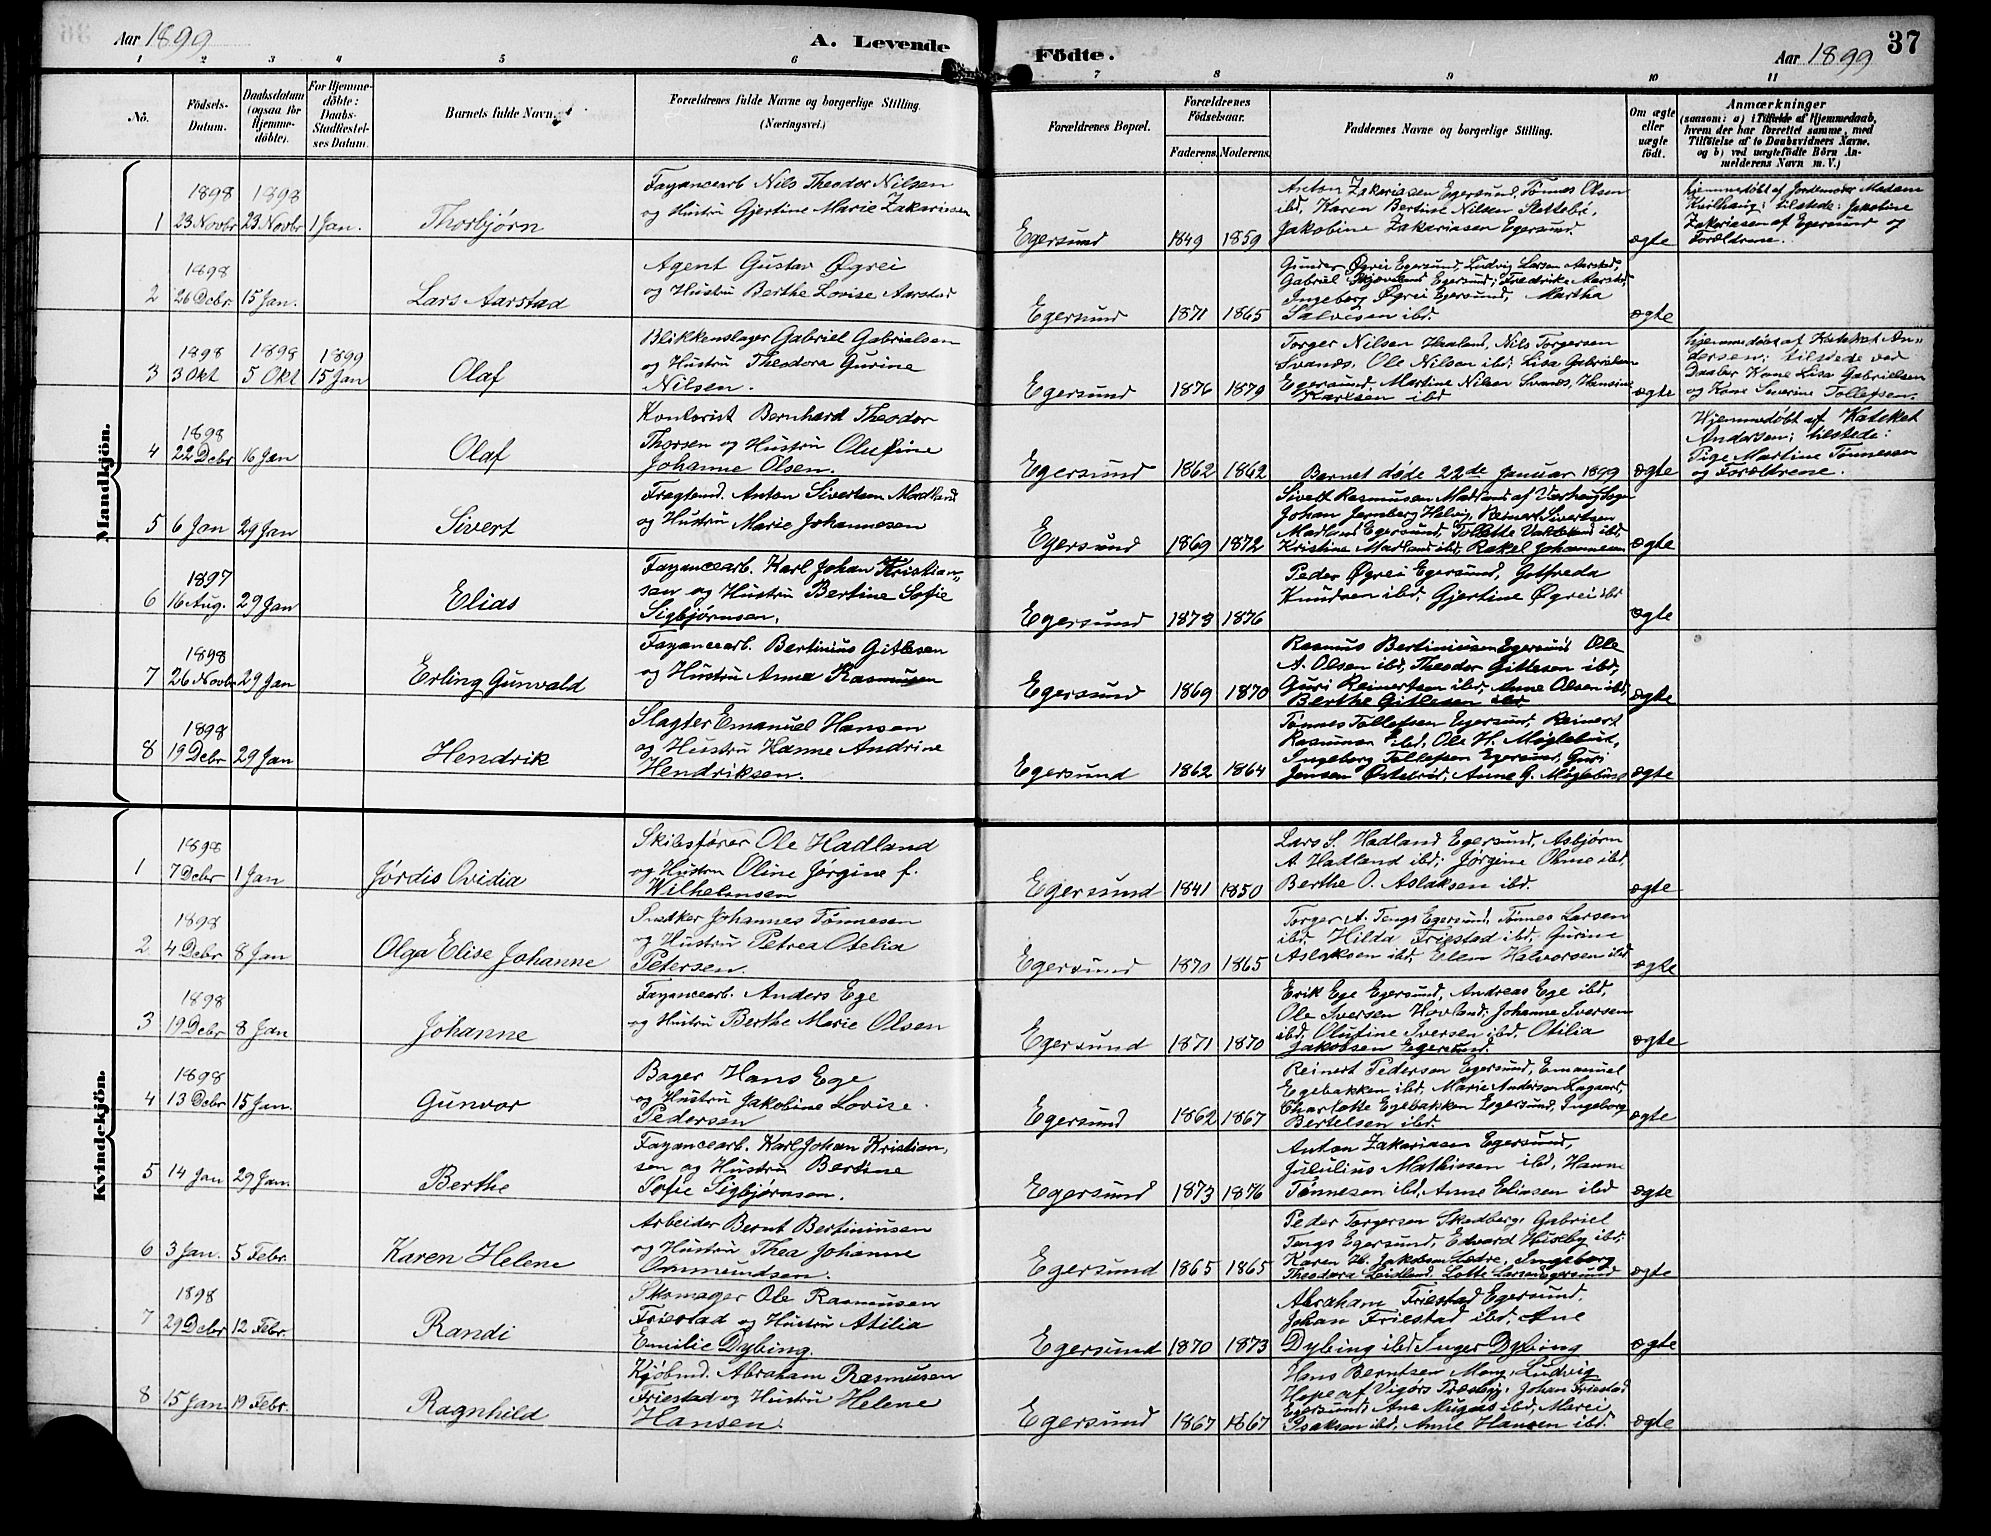 Aar 1899
A. Levende
Födte.
Aar 1899
37
1 2 3 4 5 6 7 8 9 10 11
No.
Födsels-
Datum.
Daabsdatum
(ogsaa för
Hjemme-
döbte).
For Hjemme-
döbte:
Daabs-
Stadfæstel-
ses Datum.
Barnets fulde Navn.
Forældrenes fulde Navne og borgerlige Stilling.
(Næringsvei.)
Forældrenes Bopæl.
Forældrenes
Födselsaar.
Faderens. Moderens.
Faddernes Navne og borgerlige Stilling.
Om ægte
eller
uægte
födt.
Anmærkninger
(saasom: a) i Tilfælde af Hjemmedaab,
hvem der har forrettet samme, med
Tilföielse af to Daabsvidners Navne.
og b) ved uægtefödte Börn An-
melderens Navn m. V.)
Mandkjön.
1898 1898
1 23 Novbr 23 Novbr 1 Jan. Thorbjørn
Fayancearb Nils Theodor Nilsen
og Hustru Gjertine Marie Zakariassen
Egersund 1849 1859
Anton Zakariassen Egersund, Tønnes Olsen
ibd, Karen Bertine Nilsen Slettebø,
Jakobine Zakariasen Egersund.
ægte
hjemmedøbt af Jordemoder Madam
tilstede: Jakobine
Zakariasen af Egersund og
Forældrene.
1898
2 26 Debr 15 Jan. Lars Aarstad
Agent Gustav Øgrei
og Hustru Berthe Lovise Aarstad
Egersund 1871 1865
Gunder Øgrei Egersund, Ludvig Larsen Aarstad,
Gabriel Skjæveland Egersund; Fredrikke Aarstad,
Ingeborg Øgrei Egersund, Martha
Salvesen ibd.
ægte
1898 1898 1899
3 3 Okt 5 Okt 15 Jan Olaf
Blikkenslager Gabriel Gabrielsen
og Hustru Theodora Gurine
Nilsen.
Egersund 1876 1879
Torger Nilsen Haaland, Nils Torgersen
Svanæs, Ole Nilsen ibd; Lisa Gabrielsen
Egersund, Martine Nilsen Svanæs, Hansine
Karlsen ibd
ægte
hjemmedøbt af Kateket An-
dersen; tilstede ved
Daaben Kone Lisa Gabrielsen
og Kone Severine Tollefsen.
1898
4 22 Debr 16 Jan Olaf
Kontorist Bernhard Theodor
Thorsen og Hustru Olufine
Johanne Olsen.
Egersund 1862 1862
Barnet døde 22de Januar 1899
ægte
Hjemmedøbt af Kateket
Andersen; tilstede:
Pige Martine Tønnesen
og Forældrene.
5 6 Jan 29 Jan Sivert
Fragtemd. Anton Sivertsen Madland
og Hustru Marie Johannesen
Egersund 1869 1872
Sivert Rasmusen Madland af Varhaug Sogn
Johan Jernberg Helvig, Reinert Sivertsen
Madland Egersund, Tollette ibd,
Kristine Madland ibd, Rakel Johannesen
ægte
1897
6 16 Aug. 29 Jan Elias
Fayancearb. Karl Johan Kristian-
sen og Hustru Bertine Sofie
Sigbjørnsen.
Egersund 1873 1876
Peder Øgrei Egersund, Gotfreda
Knudsen ibd, Gjertine Øgrei ibd
ægte
1898
7 26 Novbr 29 Jan Erling Gunvald
Fayancearb. Bertinius Gitlesen
og Hustru Anna Rasmusen
Egersund 1869 1870
Rasmus Bertiniusen Egersund, Ole
A. Olsen ibd, Theodor Gitlesen ibd,
Guri Reinertsen ibd, Anne Olsen ibd,
Berthe Gitlesen ibd
ægte
1898
8 19 Debr 29 Jan Hendrik
Slagter Emanuel Hansen
og Hustru Hanne Andrine
Hendriksen.
Egersund 1862 1864
Tønnes Tollefsen Egersund, Reinert
Rasmusen ibd, Ole H. Møglebust,
Ingeborg Tollefsen Egersund, Guri
Jensen Anne G. Møglebust
ægte
Kvindekjön.
1898
1 7 Debr 1 Jan Jørdis Ovidia
Skibsfører Ole Hadland
og Hustru Oline Jørgine f.
Wilhelmsen
Egersund 1841 1850
Lars S. Hadland Egersund, Asbjørn
A. Hadland ibd; Jørgine Ohme ibd,
Berthe O. Aslaksen ibd.
ægte
1898
2 4 Debr 8 Jan Olga Elise Johanne
Snedker Johannes Tønnesen
og Hustru Petrea Otelia
Petersen.
Egersund 1870 1865
Torger A. Tengs Egersund, Tønnes Larsen
ibd, Hilda Friestad ibd, Gurine
Aslaksen ibd, Ellen Halvorsen ibd
ægte
1898
3 19 Debr 8 Jan Johanne
Fayancearb. Anders Ege
og Hustru Berthe Marie Olsen
Egersund 1871 1870
Erik Ege Egersund, Andreas Ege ibd,
Ole Iversen Hovland; Johanne Iversen
ibd, Olufine Iversen ibd, Otilia
Jakobsen Egersund.
ægte
1898
4 13 Debr 15 Jan. Gunvor
Bager Hans Ege
og Hustru Jakobine Lovise
Pedersen
Egersund 1862 1867
Reinert Pedersen Egersund, Emanuel
Egebakken ibd, Marie Andersen Lagaard,
Charlotte Egebakken Egersund, Ingeborg
Bertelsen ibd.
ægte
5 14 Jan 29 Jan. Berthe
Fayancearb. Karl Johan Kristian-
sen og Hustru Bertine
Sofie Sigbjørnsen.
Egersund 1873 1876
Anton Zakariasen Egersund,
Jululius Mathissen ibd, Hanne
Tønnesen ibd, Anne Eliasen ibd
ægte
6 3 Jan. 5 Febr. Karen Helene
Arbeider Bernt Bertiniusen
og Hustru Thea Johanne
Ommundsen.
Egersund 1865 1865
Peder Torgersen Skadberg, Gabriel
Tengs Egersund, Edvard Huseby ibd;
Karen H. Jakobsen Ingeborg
Theodora Leidland, Lotte Larsen Egersund
ægte
1898
7 29 Debr 12 Febr. Randi
Skomager Ole Rasmusen
Friestad og Hustru Atilia
Emilie Dybing.
Egersund 1870 1873
Abraham Friestad Egersund,
Johan Friestad ibd, Ane
Dybing ibd Inger Dybing
ægte
8 15 Jan 19 Febr. Ragnhild
Kjøbmd. Abraham Rasmusen
Friestad og Hustru Helene
Hansen.
Egersund 1867 1867
Hans Berntsen Mong, Ludvig
Hope af Vigørs Johan Friestad
Egersund, Ane ibd, Marei
Isaksen ibd, Anne Hansen ibd.
ægte